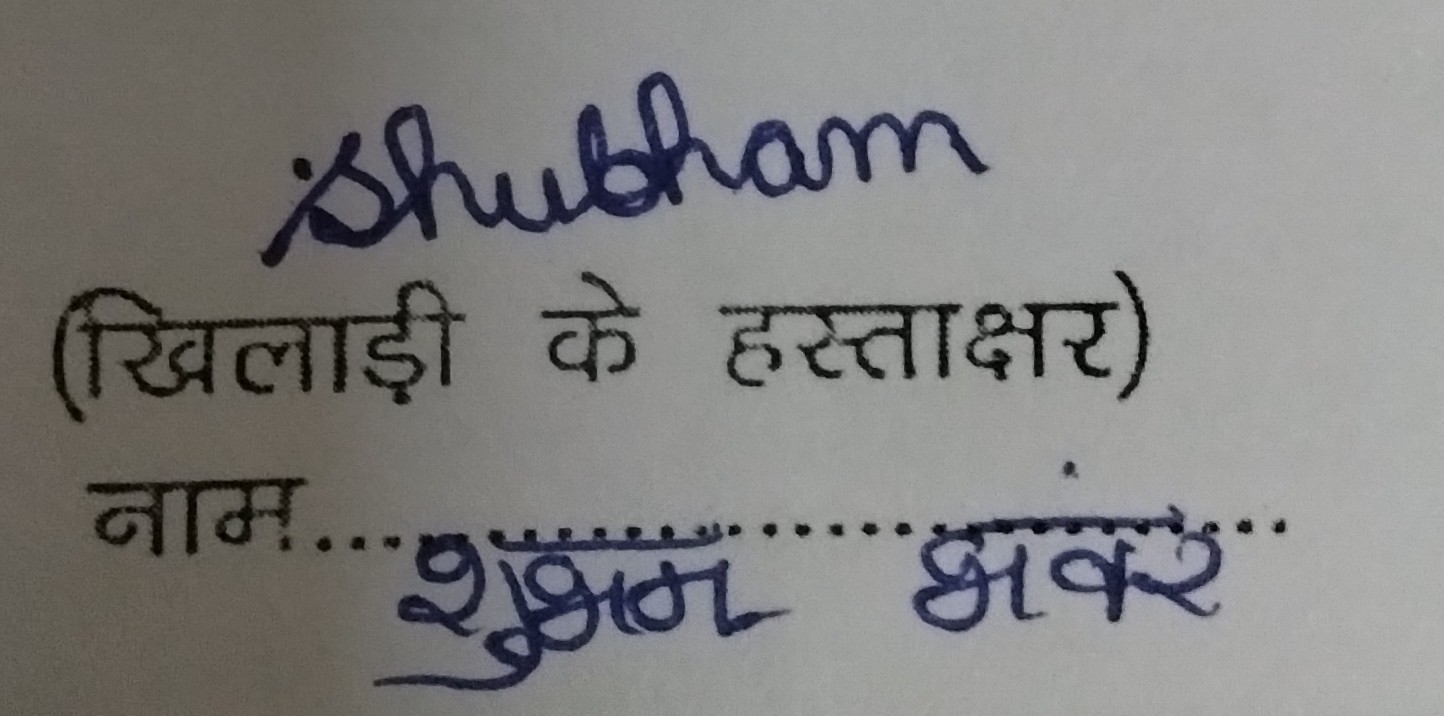 Shubham
(खिलाड़ी के हस्ताक्षर)
नाम.... शुभम भंवर